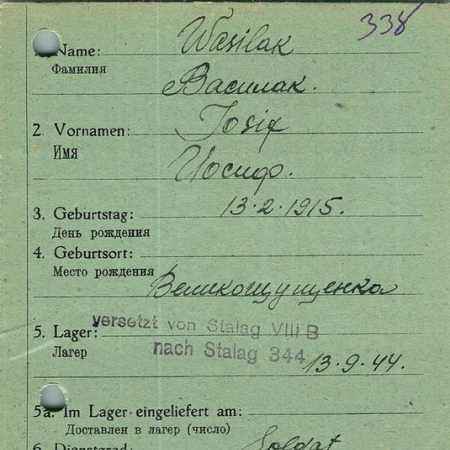 338
Name: Wasilak
Фамилия
Василак.
2. Vornamen: Iosif
Имя
Иосиф.
3. Geburtstag: 13·2·1915.
День рождения
4. Geburtsort:
Место рождения
Великощущенка
versetzt von Stalag VIII B
5. Lager:
nach Stalag 344
Лагер
13·9·44.
5a. Im Lager eingeliefert am:
Доставлен в лагер (число)
6. Dienstgrad: Soldat